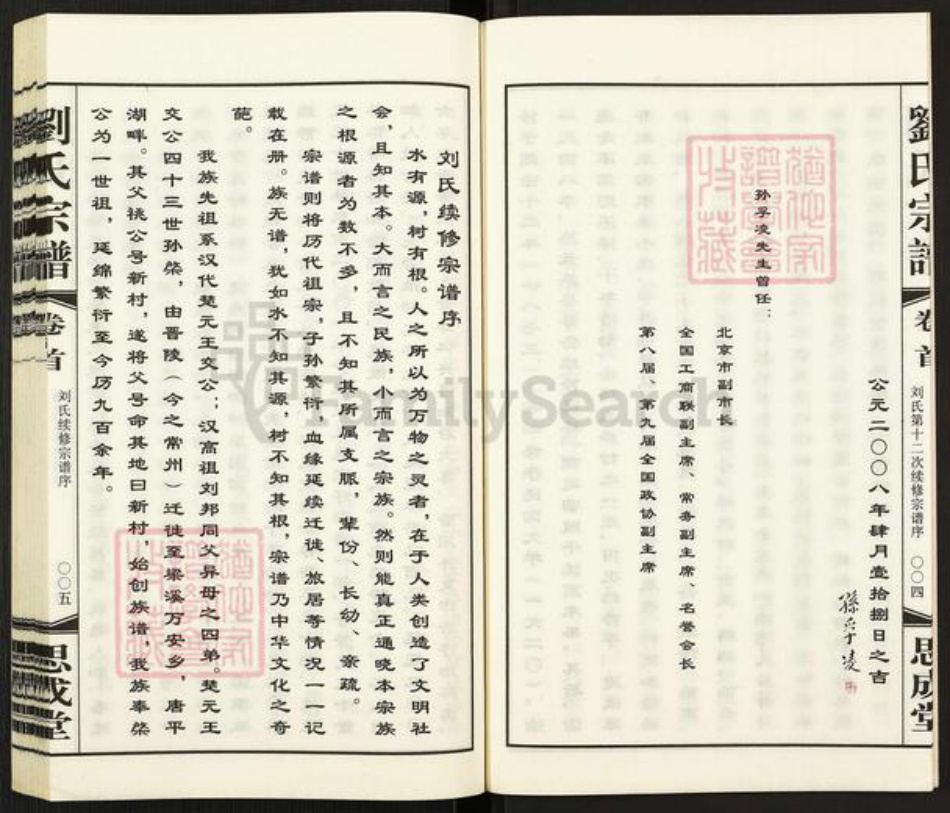 劉氏宗譜
卷首
刘氏第十二次续修宗谱序
〇〇四
思成堂
公元二〇〇八年肆月壹拾捌日之吉
孫孚凌
孙孚凌先生曾任：
北京市副市长
全国工商联副主席、常务副主席、名誉会长
第八届、第九届全国政协副主席
刘氏续修宗谱序
水有源，树有根。人之所以为万物之灵者，在于人类创造了文明社
会，且知其本。大而言之民族，小而言之宗族。然则能真正通晓本宗族
之根源者为数不多，且不知其所属支脈，辈份、长幼、亲疏。
宗谱则将历代祖宗，子孙繁衍，血缘延续迁徙、旅居等情况一一记
载在册。族无谱，犹如水不知其源，树不知其根，宗谱乃中华文化之奇
葩。
我族先祖系汉代楚元王交公；汉高祖刘邦同父异母之四弟。楚元王
交公四十三世孙棨，由晋陵（今之常州）迁徙至梁溪万安乡，唐平
湖畔。其父祧公号新村，遂将父号命其地曰新村，始创族谱，我族奉棨
公为一世祖，延绵繁衍至今历九百余年。
劉氏宗譜
卷首
刘氏续修宗谱序
〇〇五
思成堂
FamilySearch